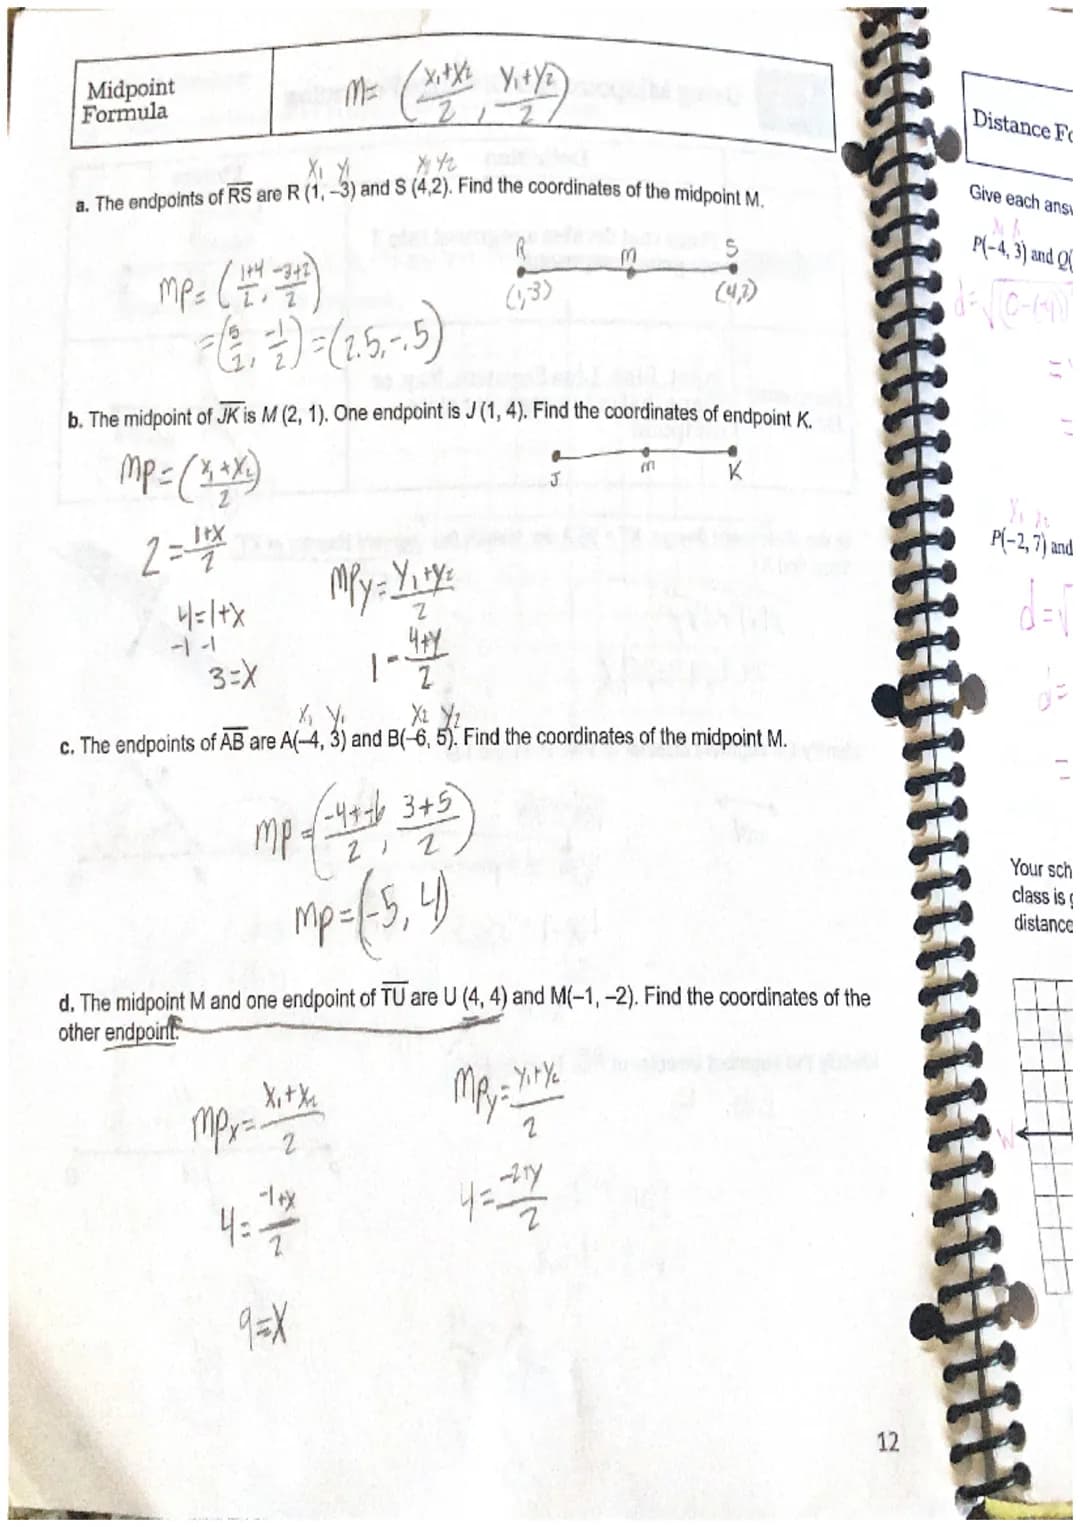 Midpoint
Formula
M= (x₁+x₂/2, y₁+y₂/2)
x₁ y₁ x₂ y₂
a. The endpoints of RS are R (1, –3) and S (4,2). Find the coordinates of the midpoint M.
R M S
(1,-3) (4,2)
MP= (1+4/2, -3+2/2)
=(5/2, -1/2) =(2.5,-.5)
b. The midpoint of JK is M (2, 1). One endpoint is J (1, 4). Find the coordinates of endpoint K.
MP=(x₁+x₂/2)
J m K
2=1+x/2
4=1+x
-1 -1
3=x
MPy=y₁+y₂/2
1=4+y/2
x₁ y₁ x₂ y₂
c. The endpoints of AB are A(–4, 3) and B(–6, 5). Find the coordinates of the midpoint M.
MP=(-4+-6/2, 3+5/2)
MP=(-5, 4)
d. The midpoint M and one endpoint of TU are U (4, 4) and M(–1, –2). Find the coordinates of the
other endpoint.
MPx=x₁+x₂/2
4=-1+x/2
9=x
MPy=y₁+y₂/2
4=-2+y/2
12
Distance Fo
Give each answ
P(–4, 3) and Q(
d=√(0-(-4))
=
=
P(–2, 7) and
d=√
d=
=
Your sch
class is g
distance
W